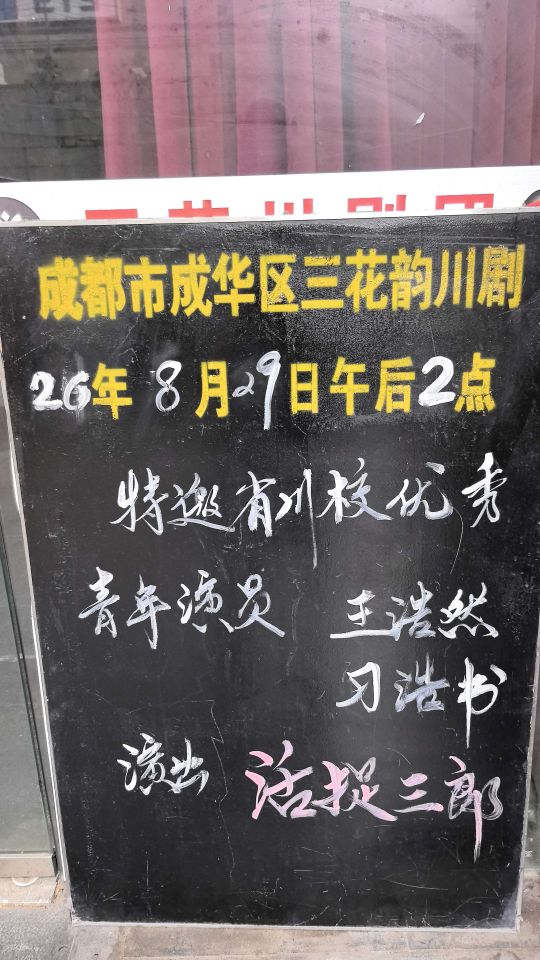 成都市成华区三花韵川剧
26年8月29日午后2点
特邀省川校优秀
青年演员 王浩然
习浩书
演出 活捉三郎